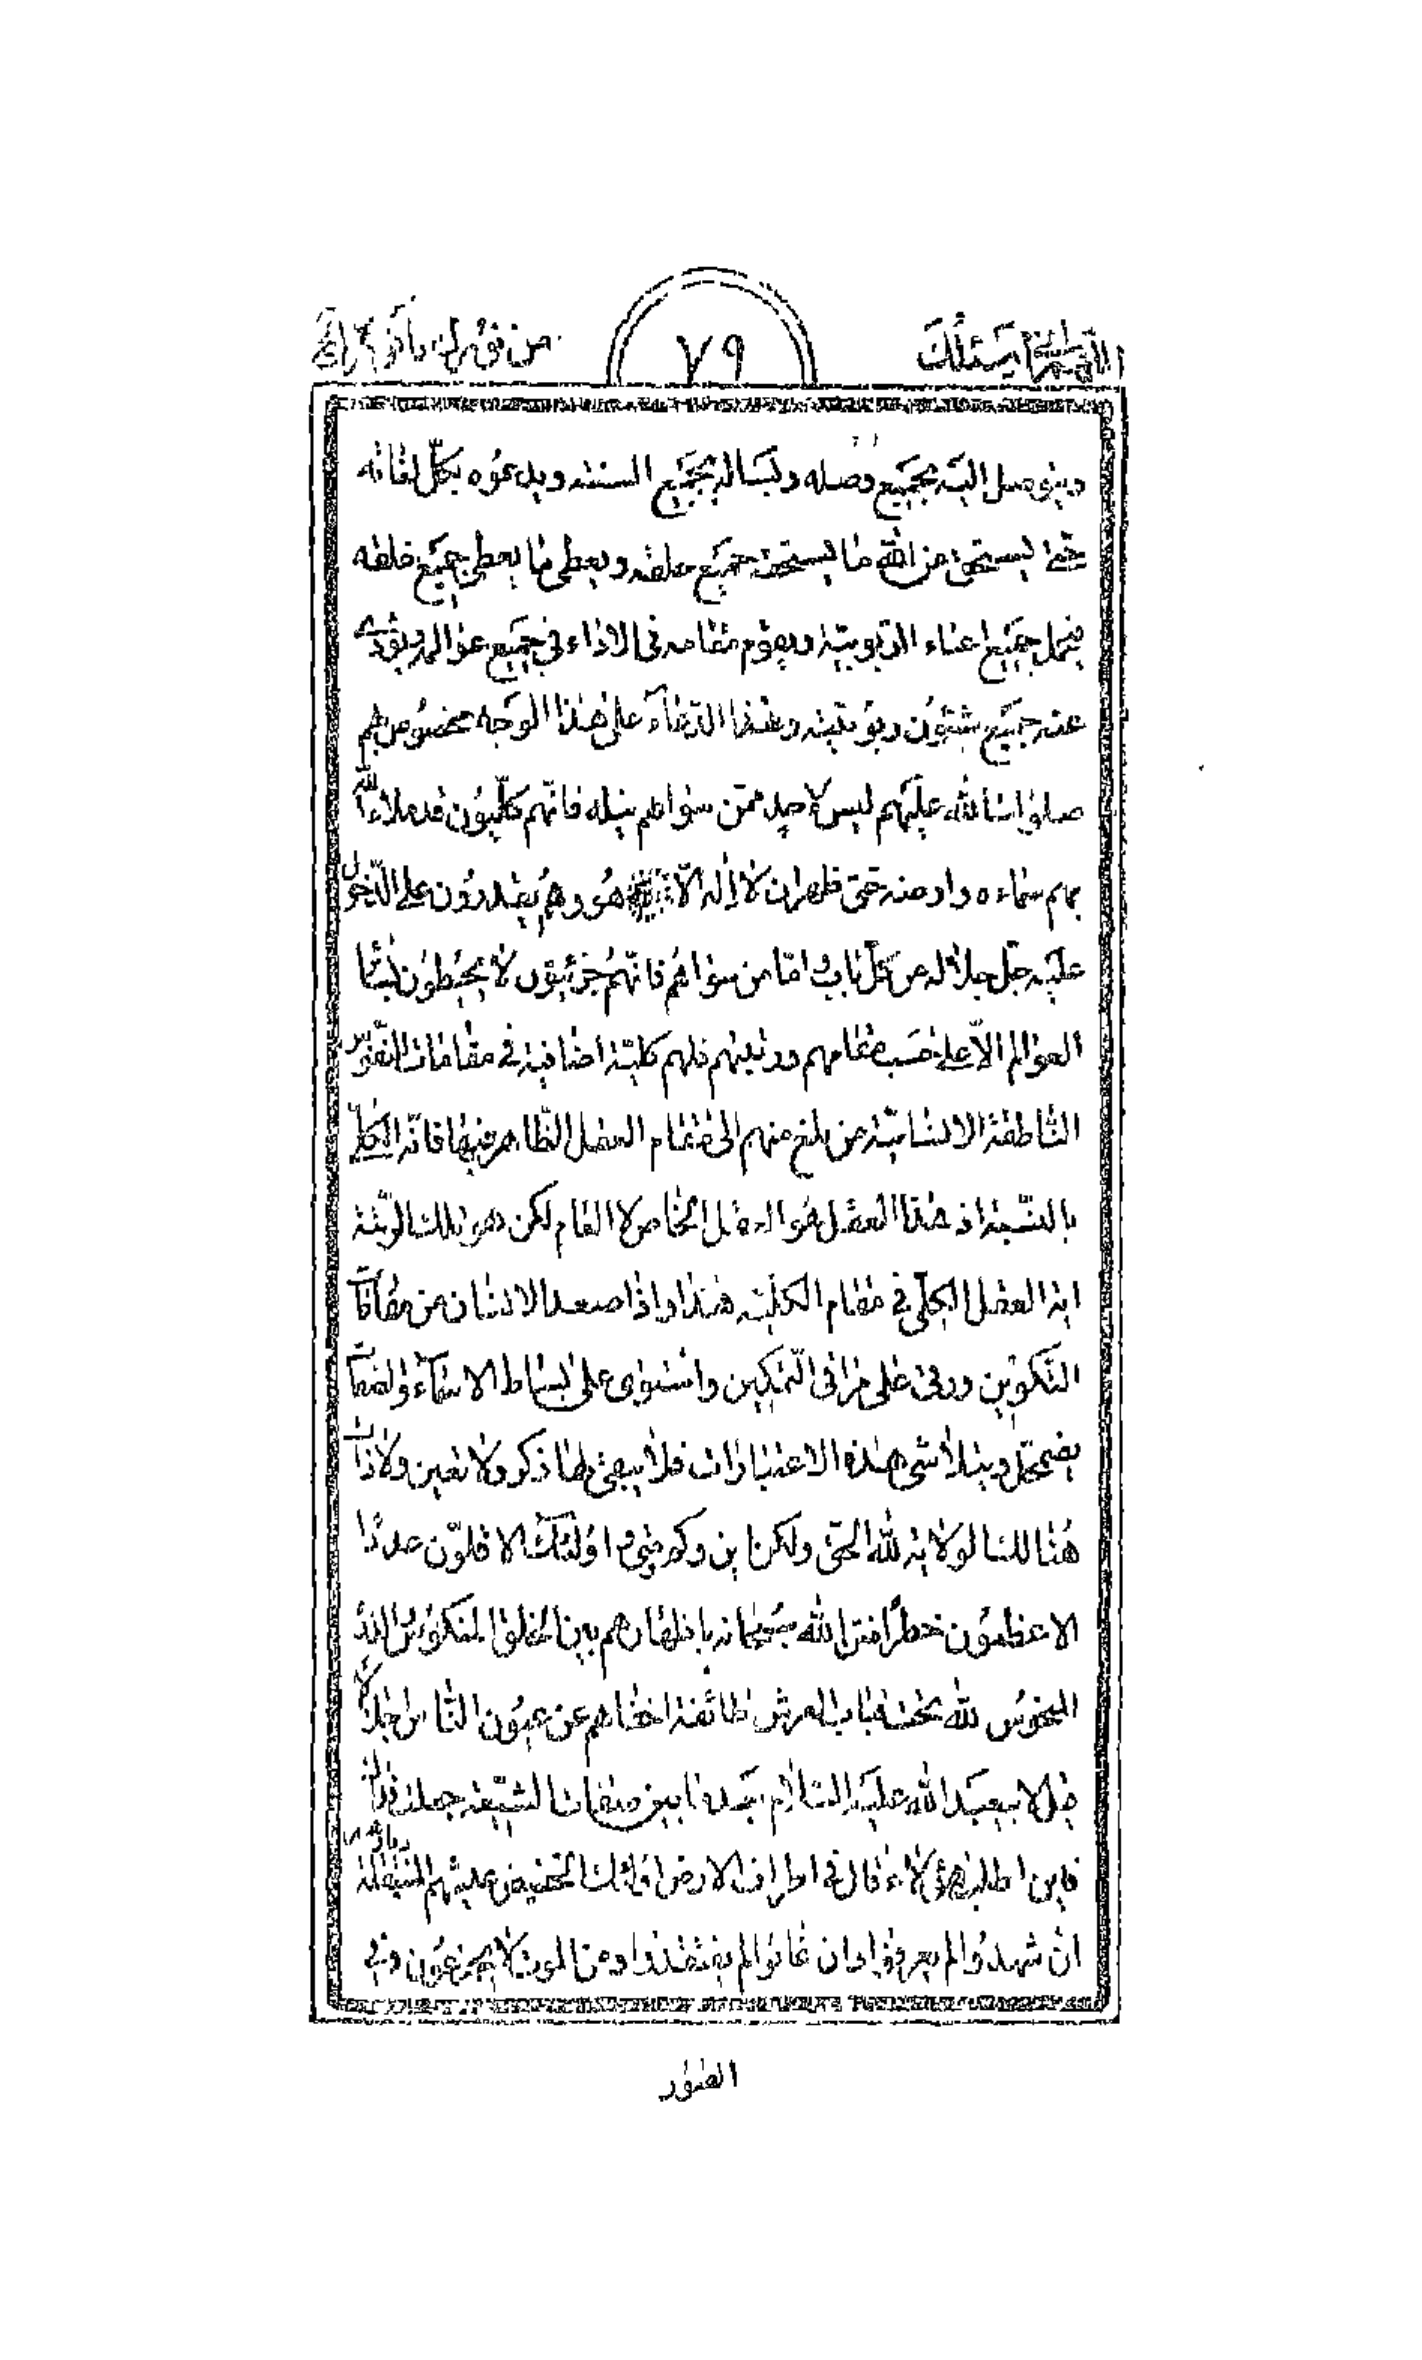 اللهم انى اسئلك
٧٩
من قولك بارضاه
ويتوصل اليه بجميع وصله ويساله بجميع السنته ويدعوه بكل لغاته
حتى يستحق من الله ما يستحقه جميع خلقه ويعطى ما يعطى جميع خلقه
فيحمل جميع اعباء الربوبية ويقوم مقامه فى الاداء فى جميع عوالمه ويؤدى
عنه جميع شئون ربوبيته وهذا الدعاء على هذا الوجه مخصوص بهم
صلوات الله عليهم ليس لاحد ممن سواهم نيله فانهم كليون قد ملاء الله
بهم سماءه وارضه حتى ظهر ان لا اله الا هو وهم يقدرون على الدخول
عليه جل جلاله من كل باب واما من سواهم فانهم جزئيون لا يحيطون بساير
العوالم الا على حسب مقامهم ورتبتهم فلهم كلية اضافية فى مقامات النفوس
الناطقة الانسانية من بلغ منهم الى مقام العقل الظاهر فيها فانه الكلى
بالنسبة اذ هذا العقل هو العقل الخاص لا العام لكن هو بتلك الرتبة
اية العقل الكلى فى مقام الكلية هذا واذا صعد الانسان من مقامات
التكوين ورقى على مراقى التمكين واستوى على بساط الاسماء والصفات
يضمحل ويتلاشى هذه الاعتبارات فلا يبقى لها ذكر ولا تعين ولا ذات
هنالك الولاية لله الحق ولكن اين وكم هم اولئك الاقلون عددا
الاعظمون خطرا من الله سبحانه باظهارهم بين الخلق المنكوس
المنحوس لله تحت قباب العرش طائفة اخفاهم عن عيون الناس اجلالا
قيل لابيعبد الله عليه السلام بعد ما بين صفات الشيعة جعلت فداك
فاين اطلب هؤلاء قال فى اطراف الارض اولئك الخفيض عيشهم المنتقلة ديارهم
ان شهدوا لم يعرفوا وان غابوا لم يفتقدوا ومن الموت لا يجزعون وفى
القبور